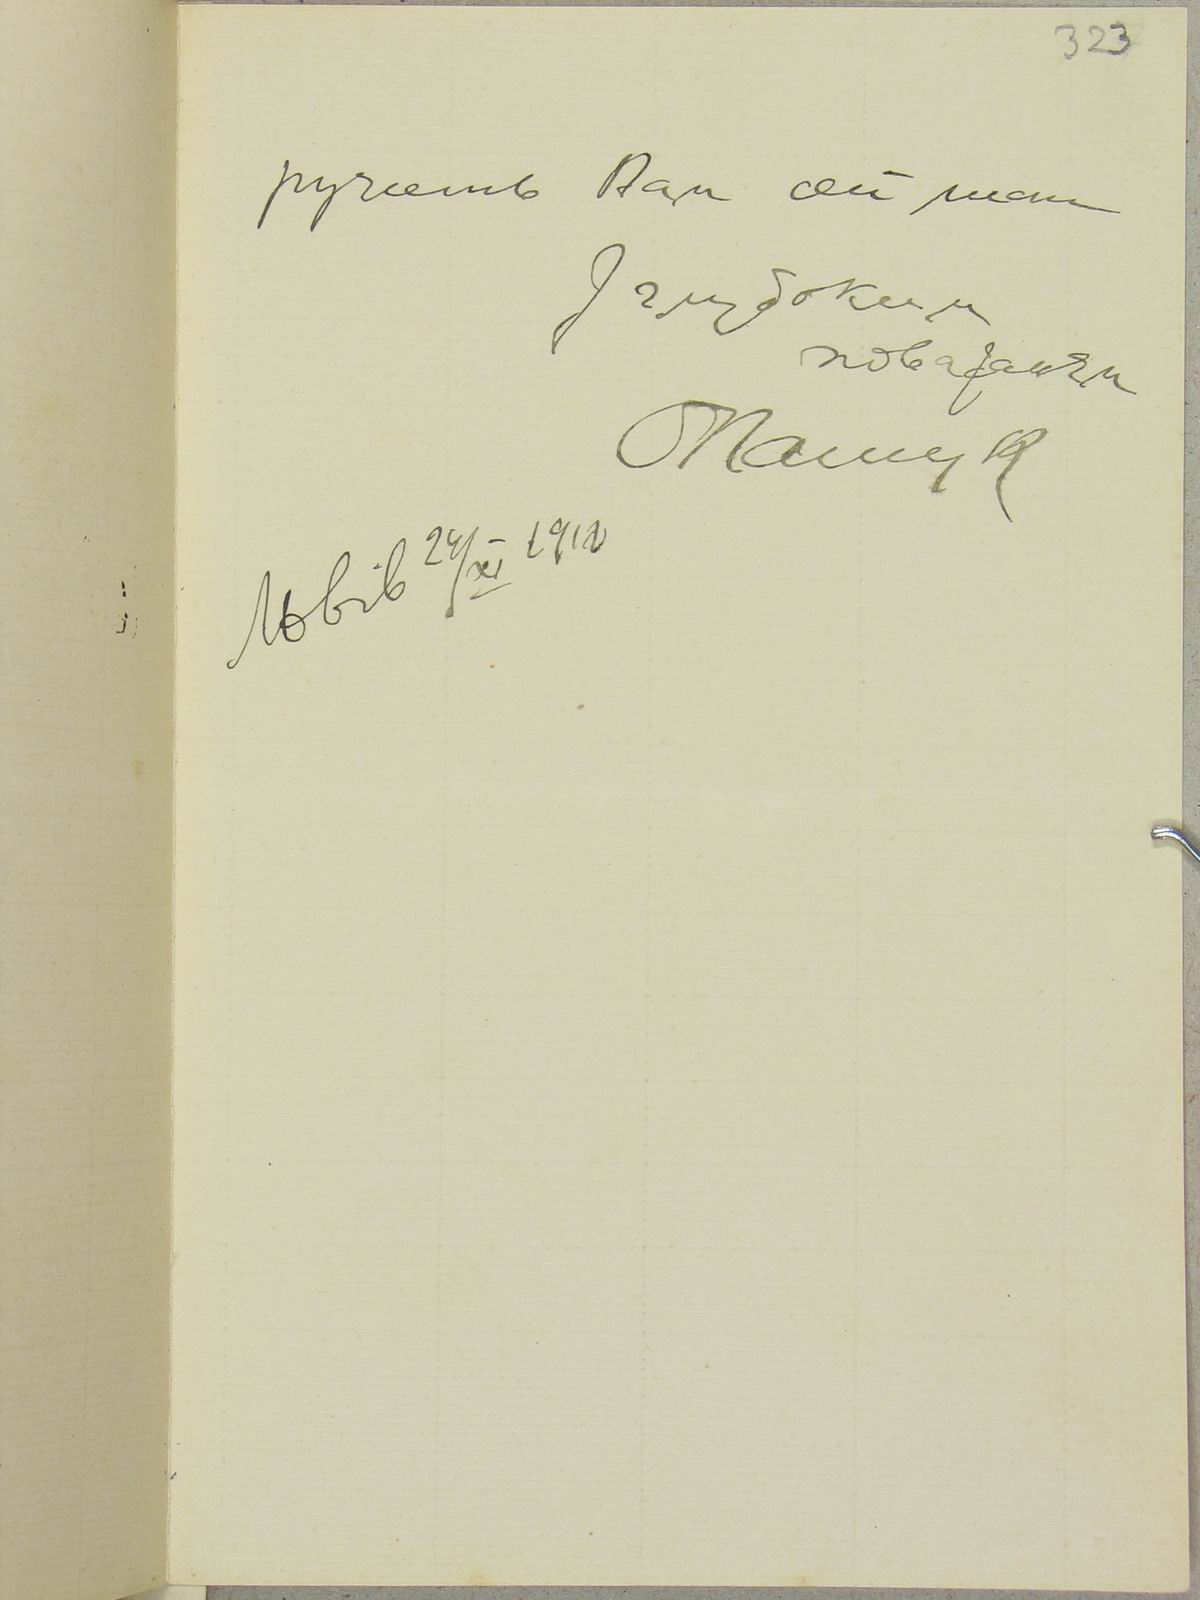 323
ручить Вам сей лист
З глубоким
поважанєм
Пашук
Львів 24/XI 1912